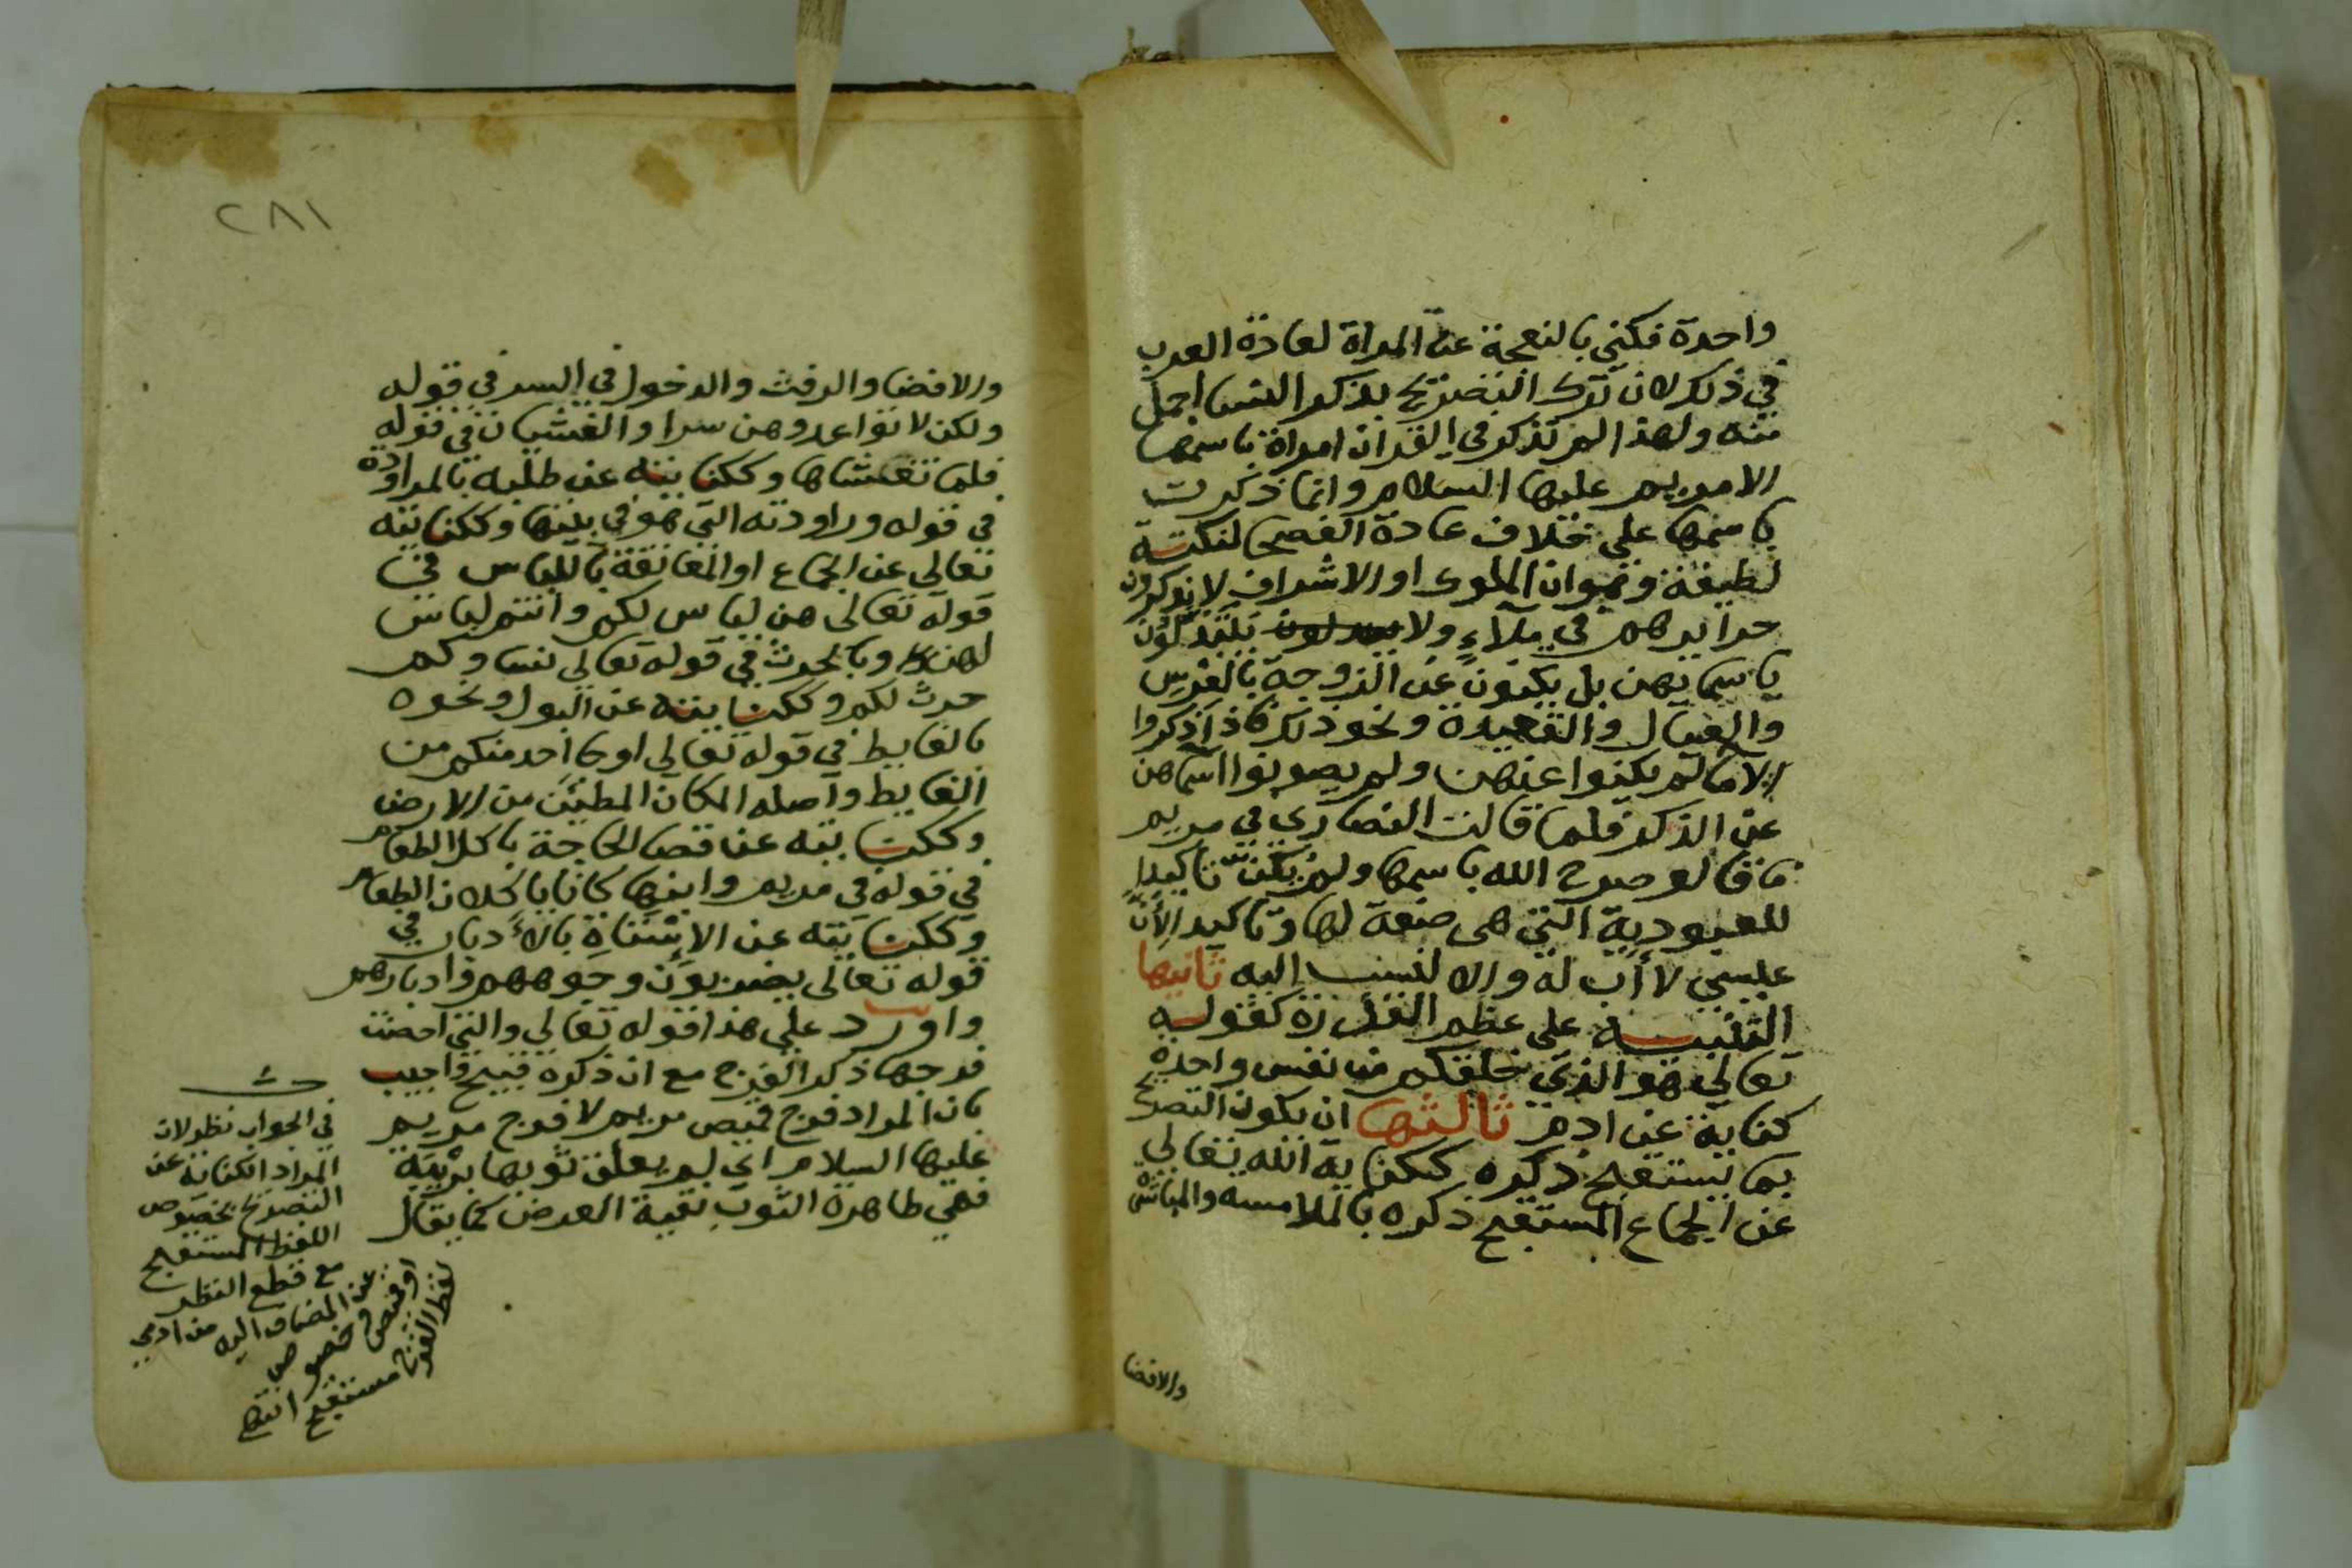 واحدة فكني بالنعجة عن المراة لعادة العرب
في ذلك لان ترك التصريح بذكر النسا اجمل
منه ولهذا لم تذكر في القران امراة باسمها
الا مريم عليها السلام وانما ذكرت
باسمها على خلاف عادة الفصحا لنكتة
لطيفة وهو ان الملوك او الاشراف لا يذكرون
حرايرهم في ملاءٍ ولا يبتذلون
باسمايهن بل يكنون عن الزوجة بالعرس
والعيال والقعيدة ونحو ذلك فاذا ذكروا
الاما لم يكنوا عنهن ولم يصونوا اسماهن
عن الذكر فلما قالت النصارى في مريم
ما قالو صرح الله باسمها ولم يكن تاكيدا
للعبودية التي هي صفة لها وتاكيد الأن
عيسى لا أب له والا لنسب اليه ثانيها
التنبيه على عظم القدرة كقوله
تعالى هو الذي خلقكم من نفس واحدة
كناية عن ادم ثالثها ان يكون التصريح
بما يستقبح ذكره ككناية الله تعالى
عن الجماع المستقبح ذكره بالملامسه والمباشرة
والافضا
٢٨١
والافضا والرفث والدخول في السر في قوله
ولكن لا تواعدوهن سرا والغشيان في قوله
فلما تغشاها وككنايته عن طلبه بالمراودة
في قوله وراودته التي هو في بيتها وككنايته
تعالى عن الجماع او المعانقة باللباس في
قوله تعالى هن لباس لكم وانتم لباس
لهن وبالحرث في قوله تعالى نساوكم
حرث لكم وككنايته عن البول ونحوه
بالغايط في قوله تعالى اوجا احد منكم من
الغايط واصله المكان المطين من الارض
وككنايته عن قضا الحاجة باكل الطعام
في قوله في مريم وابنها كانا ياكلان الطعام
وككنايته عن الاستاه بالأدبار في
قوله تعالى يضربون وجوههم وادبارهم
واورد على هذا قوله تعالى والتي احصنت
فرجها ذكر الفرج مع ان ذكره قبيح واجيب
بان المراد فرج قميص مريم لا فرج مريم
عليها السلام اي لم يعلق ثوبها بريبة
فهي طاهرة الثوب نقية العرض كما يقال
في الجواب نظر لان
المراد الكناية عن
التصريح بخصوص
اللفظ المستقبح
مع قطع النظر
عن المضاف اليه من ادمي
او قميص وخصوص
لفظ الفرج مستقبح انتهى